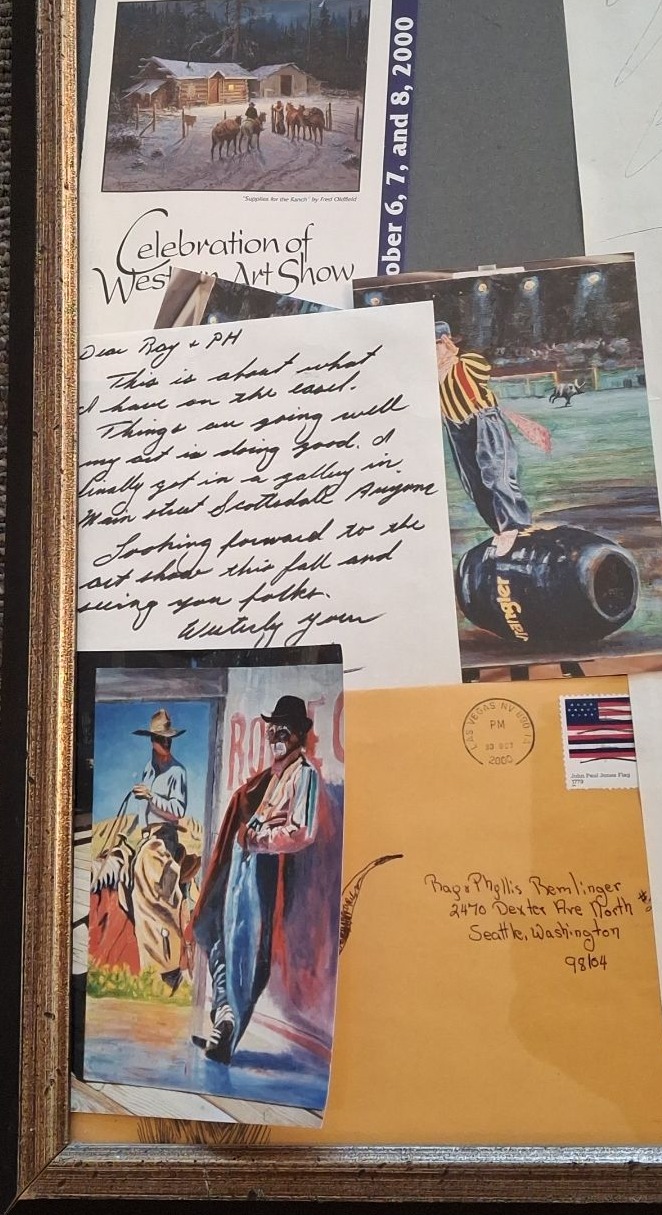 "Supplies for the Ranch" by Fred Oldfield
Celebration of
Western Art Show
ober 6, 7, and 8, 2000
Dear Ray + PH
This is about what
I have on the easel.
Things are going well
my art is doing good. I
finally got in a gallery in
Main street Scottsdale
Looking forward to the
art show this fall and
seeing you folks.
Westerly yours
Wrangler
RO
LAS VEGAS NV 890
PM
OCT
2000
John Paul Jones Flag
1779
Ray & Phyllis Bemlinger
2470 Dexter Ave North #
Seattle, Washington
98104